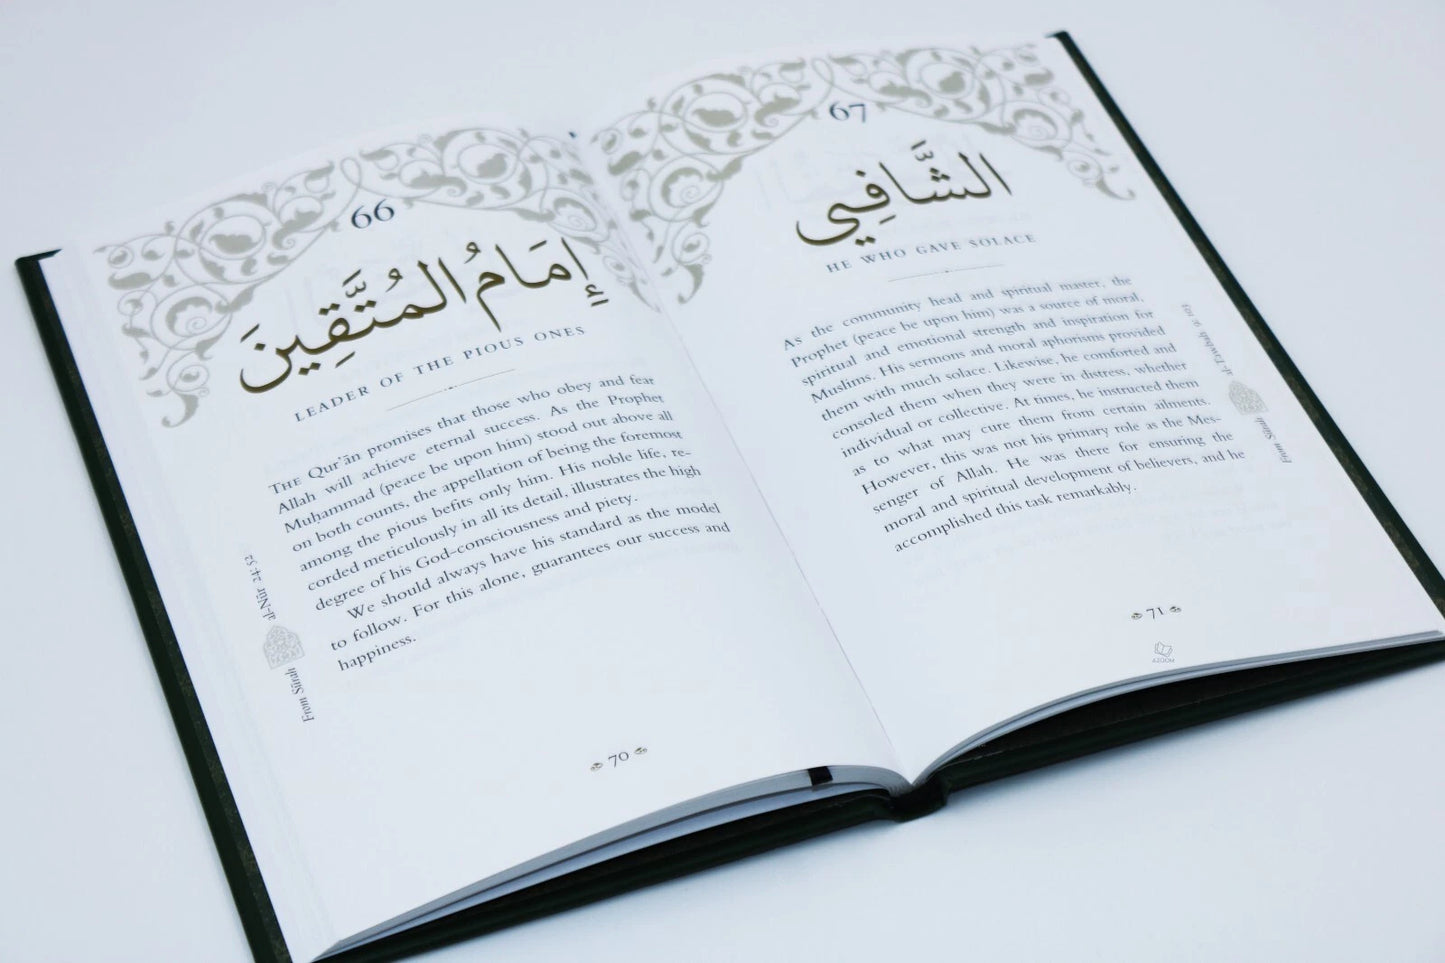 66
إِمَامُ المُتَّقِينَ
LEADER OF THE PIOUS ONES
THE Qur'ān promises that those who obey and fear
Allah will achieve eternal success. As the Prophet
Muḥammad (peace be upon him) stood out above all
on both counts, the appellation of being the foremost
among the pious befits only him. His noble life, re-
corded meticulously in all its detail, illustrates the high
degree of his God-consciousness and piety.
We should always have his standard as the model
to follow. For this alone, guarantees our success and
happiness.
From Sūrah al-Nūr 24:52
70
67
الشَّافِي
HE WHO GAVE SOLACE
As the community head and spiritual master, the
Prophet (peace be upon him) was a source of moral,
spiritual and emotional strength and inspiration for
Muslims. His sermons and moral aphorisms provided
them with much solace. Likewise, he comforted and
consoled them when they were in distress, whether
individual or collective. At times, he instructed them
as to what may cure them from certain ailments.
However, this was not his primary role as the Mes-
senger of Allah. He was there for ensuring the
moral and spiritual development of believers, and he
accomplished this task remarkably.
From Sūrah al-Tawbah 9:103
71
AZOOM